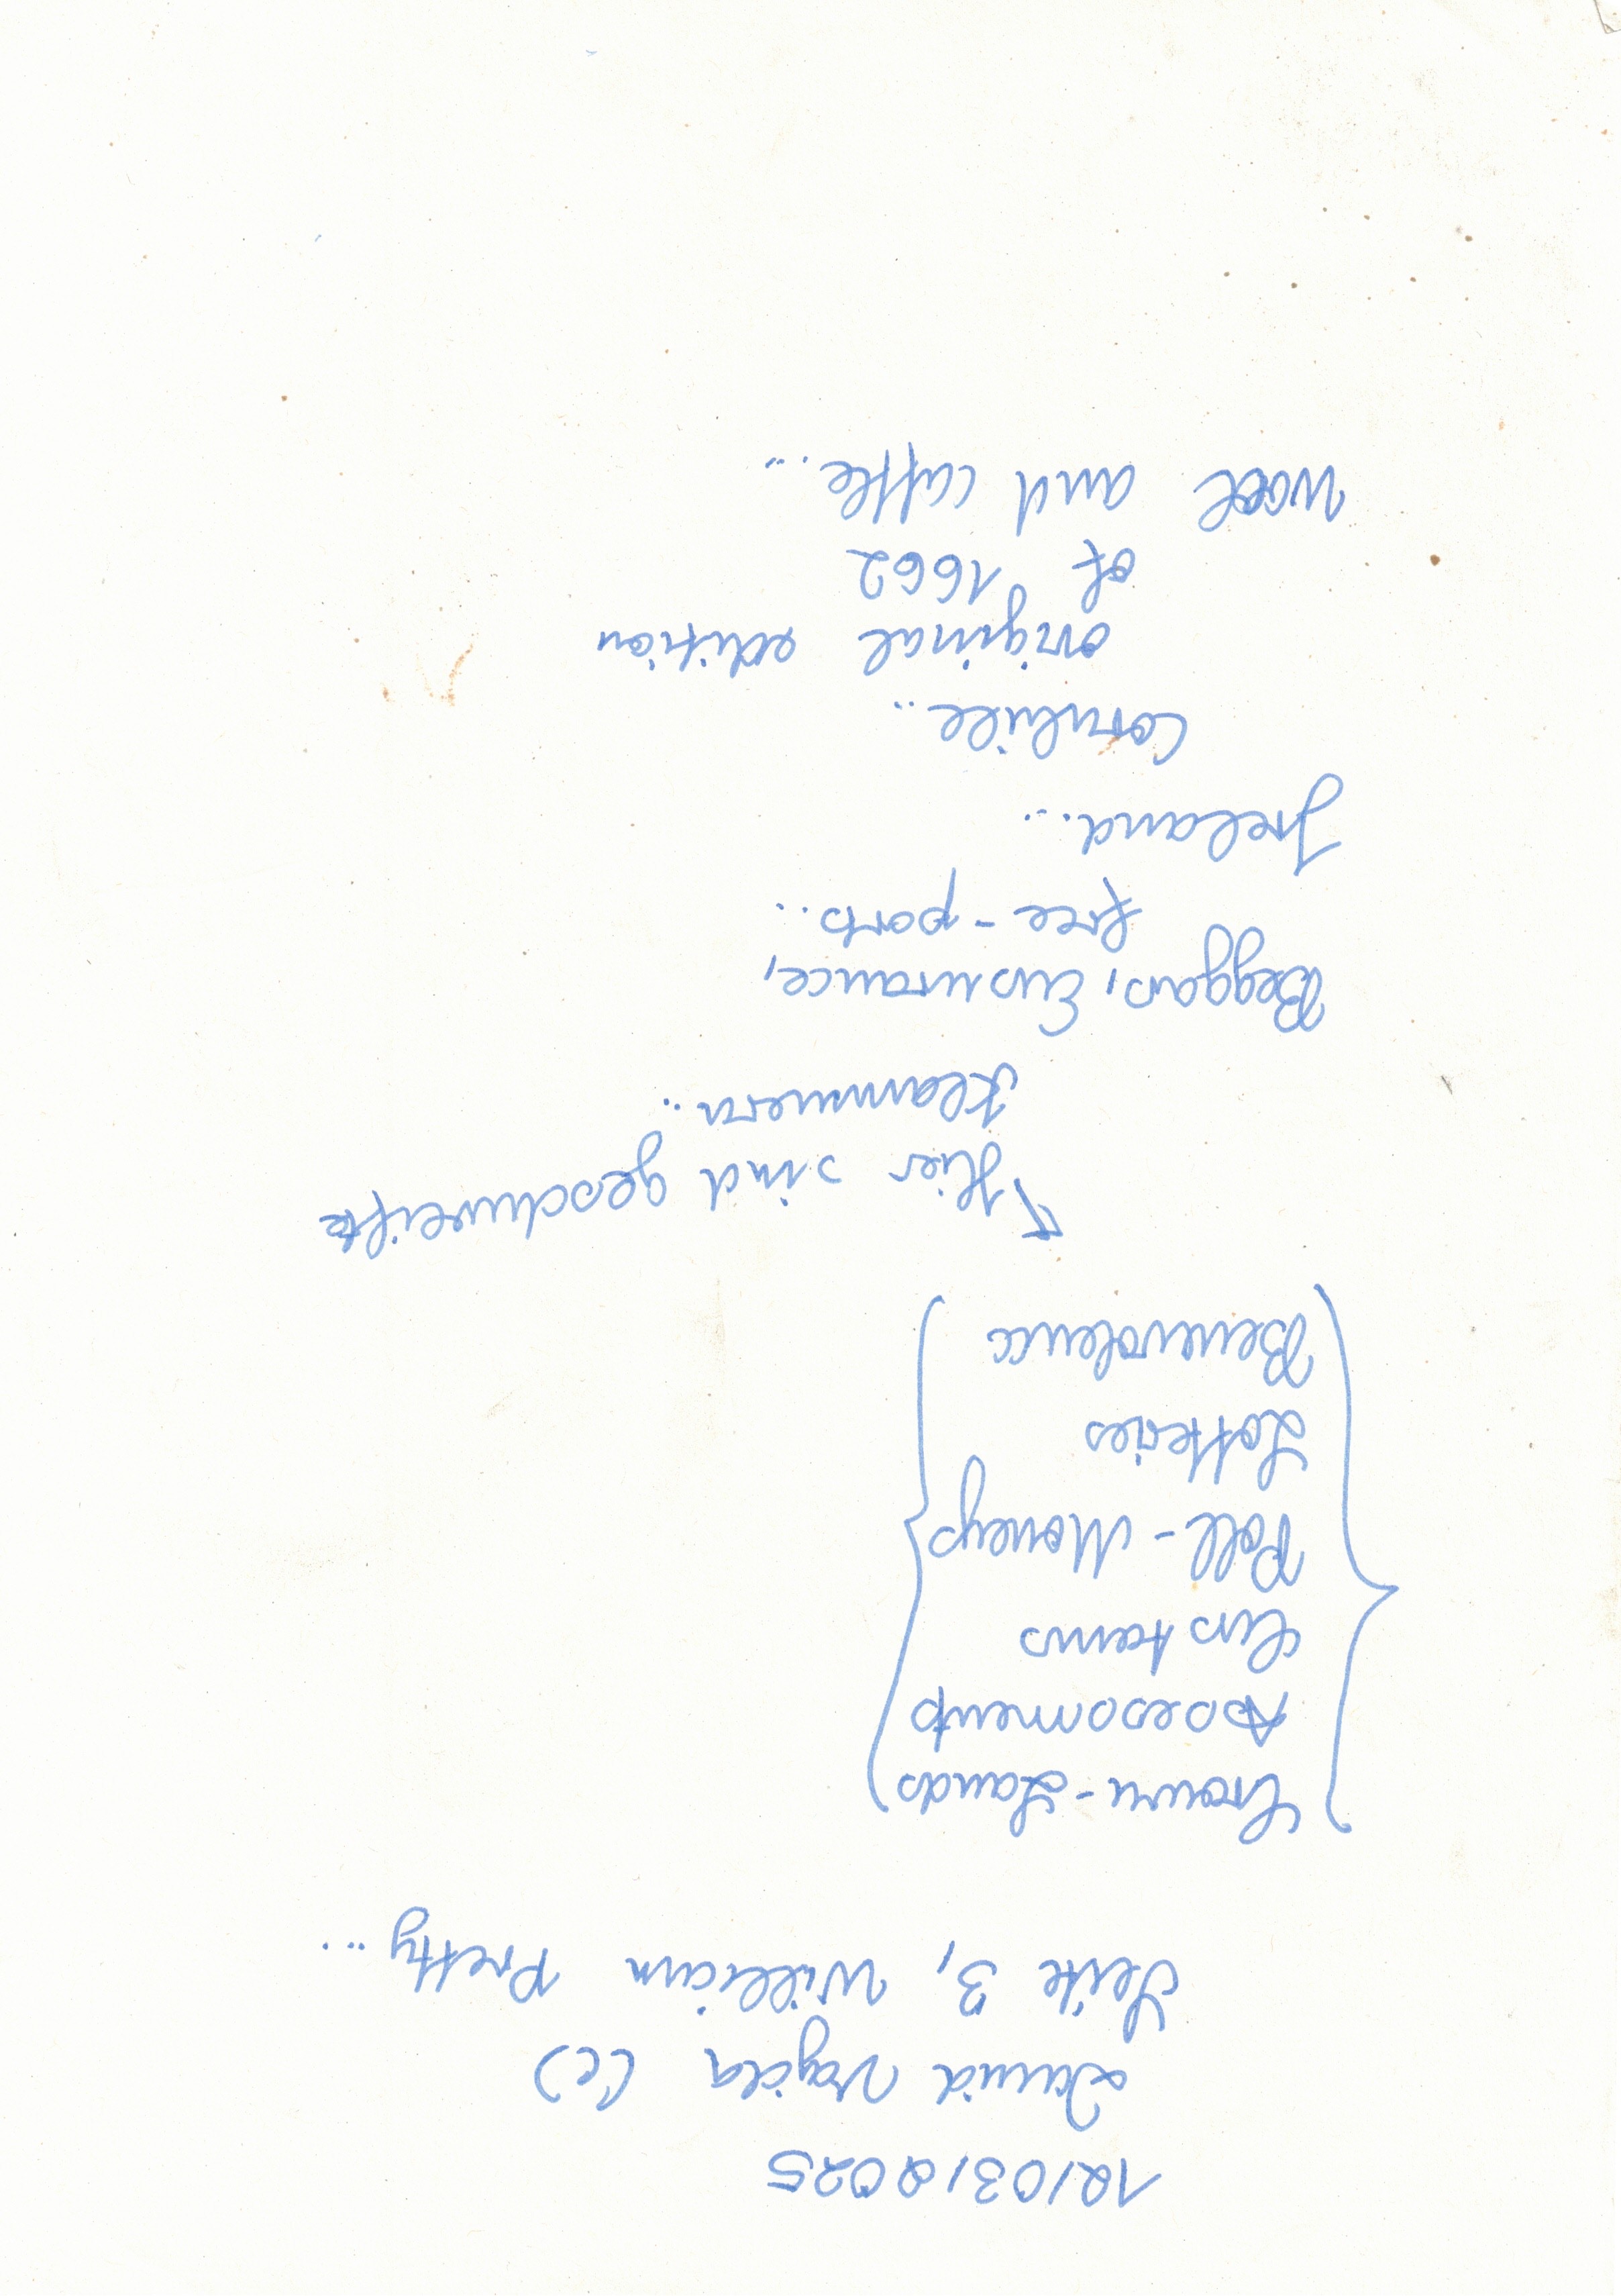 12/03/2025
David Vajda (c)
Seite 3, William Pretty...
Crown-Lands
Assessments
Customs
Poll-Moneys
Lotteries
Benevolence
Hier sind geschweifte
Klammern...
Beggars, Ensurance,
free-ports...
Ireland...
Cornhill...
original edition
of 1662
Wool and cattle...